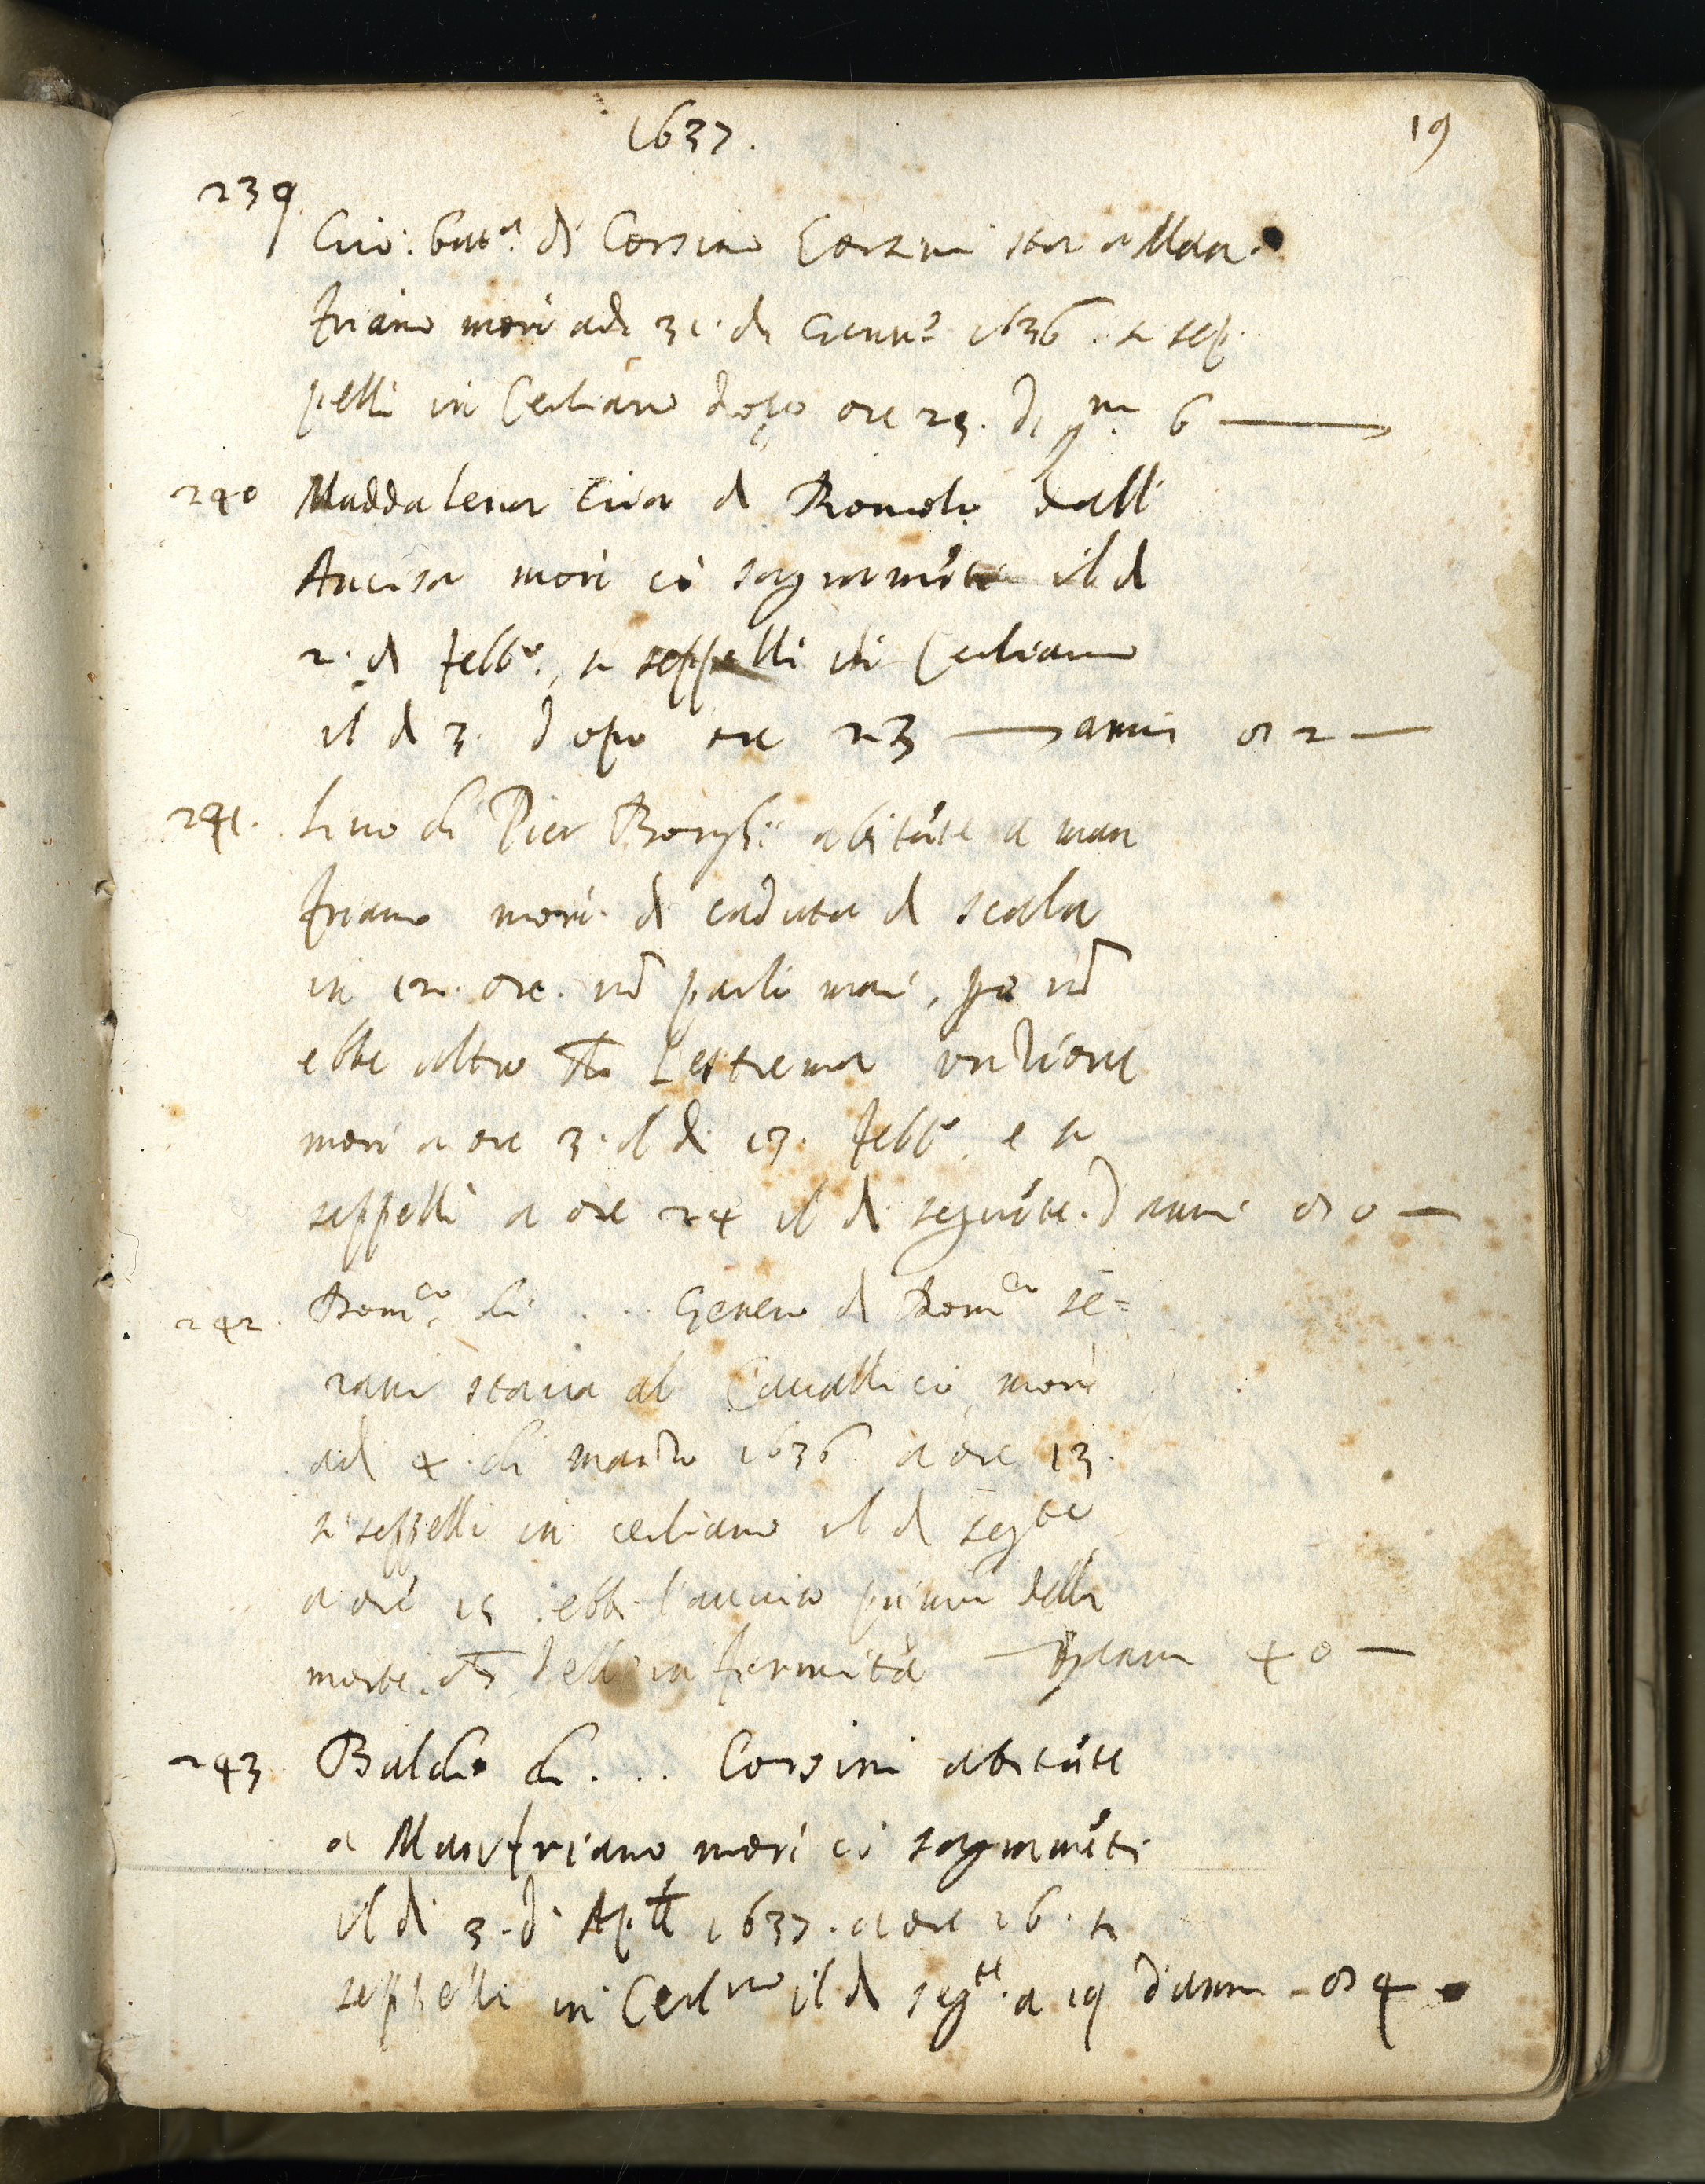 1637.
19
239
Gio: batta. di Corsino Corsini sta a Man
friano morì adi 31. di Genn.o 1636. si sep
pellì in Cerliano dopo ore 23. di 6
240 Maddalena di Romolo dall
Ancisa morì cō sagramēti il dì
2. di febb.o, si seppellì in Cerliano
il dì 3. dopo ore 23 anni 82
241. Lino di Pier Borghi abitāte a man
friano morì di caduta di scala
in 12. ore. nō parlò mai, pō nō
ebbe altro che L'estrema untione
morì a ore 3. il dì 13. febb.o e si
seppellì a ore 24 il dì seguēte. D anni 80
242. Dom.co di . . . Genero di Dom.co Se=
rani stava al Cavallico morì
adì 4. di marzo 1636. a ore 13.
si seppellì in cerliano il dì seg.te
a ore 15. ebbi l'avviso prima della
morte. che dell'infermità anni 40
243 Baldo di . . . Corsini abitāte
a Manfriano morì cō sagramēti
il di 3. di Ap.le 1637. a ore 16. si
seppellì in Cerl.no il dì seg.te a 19 d'anni 84